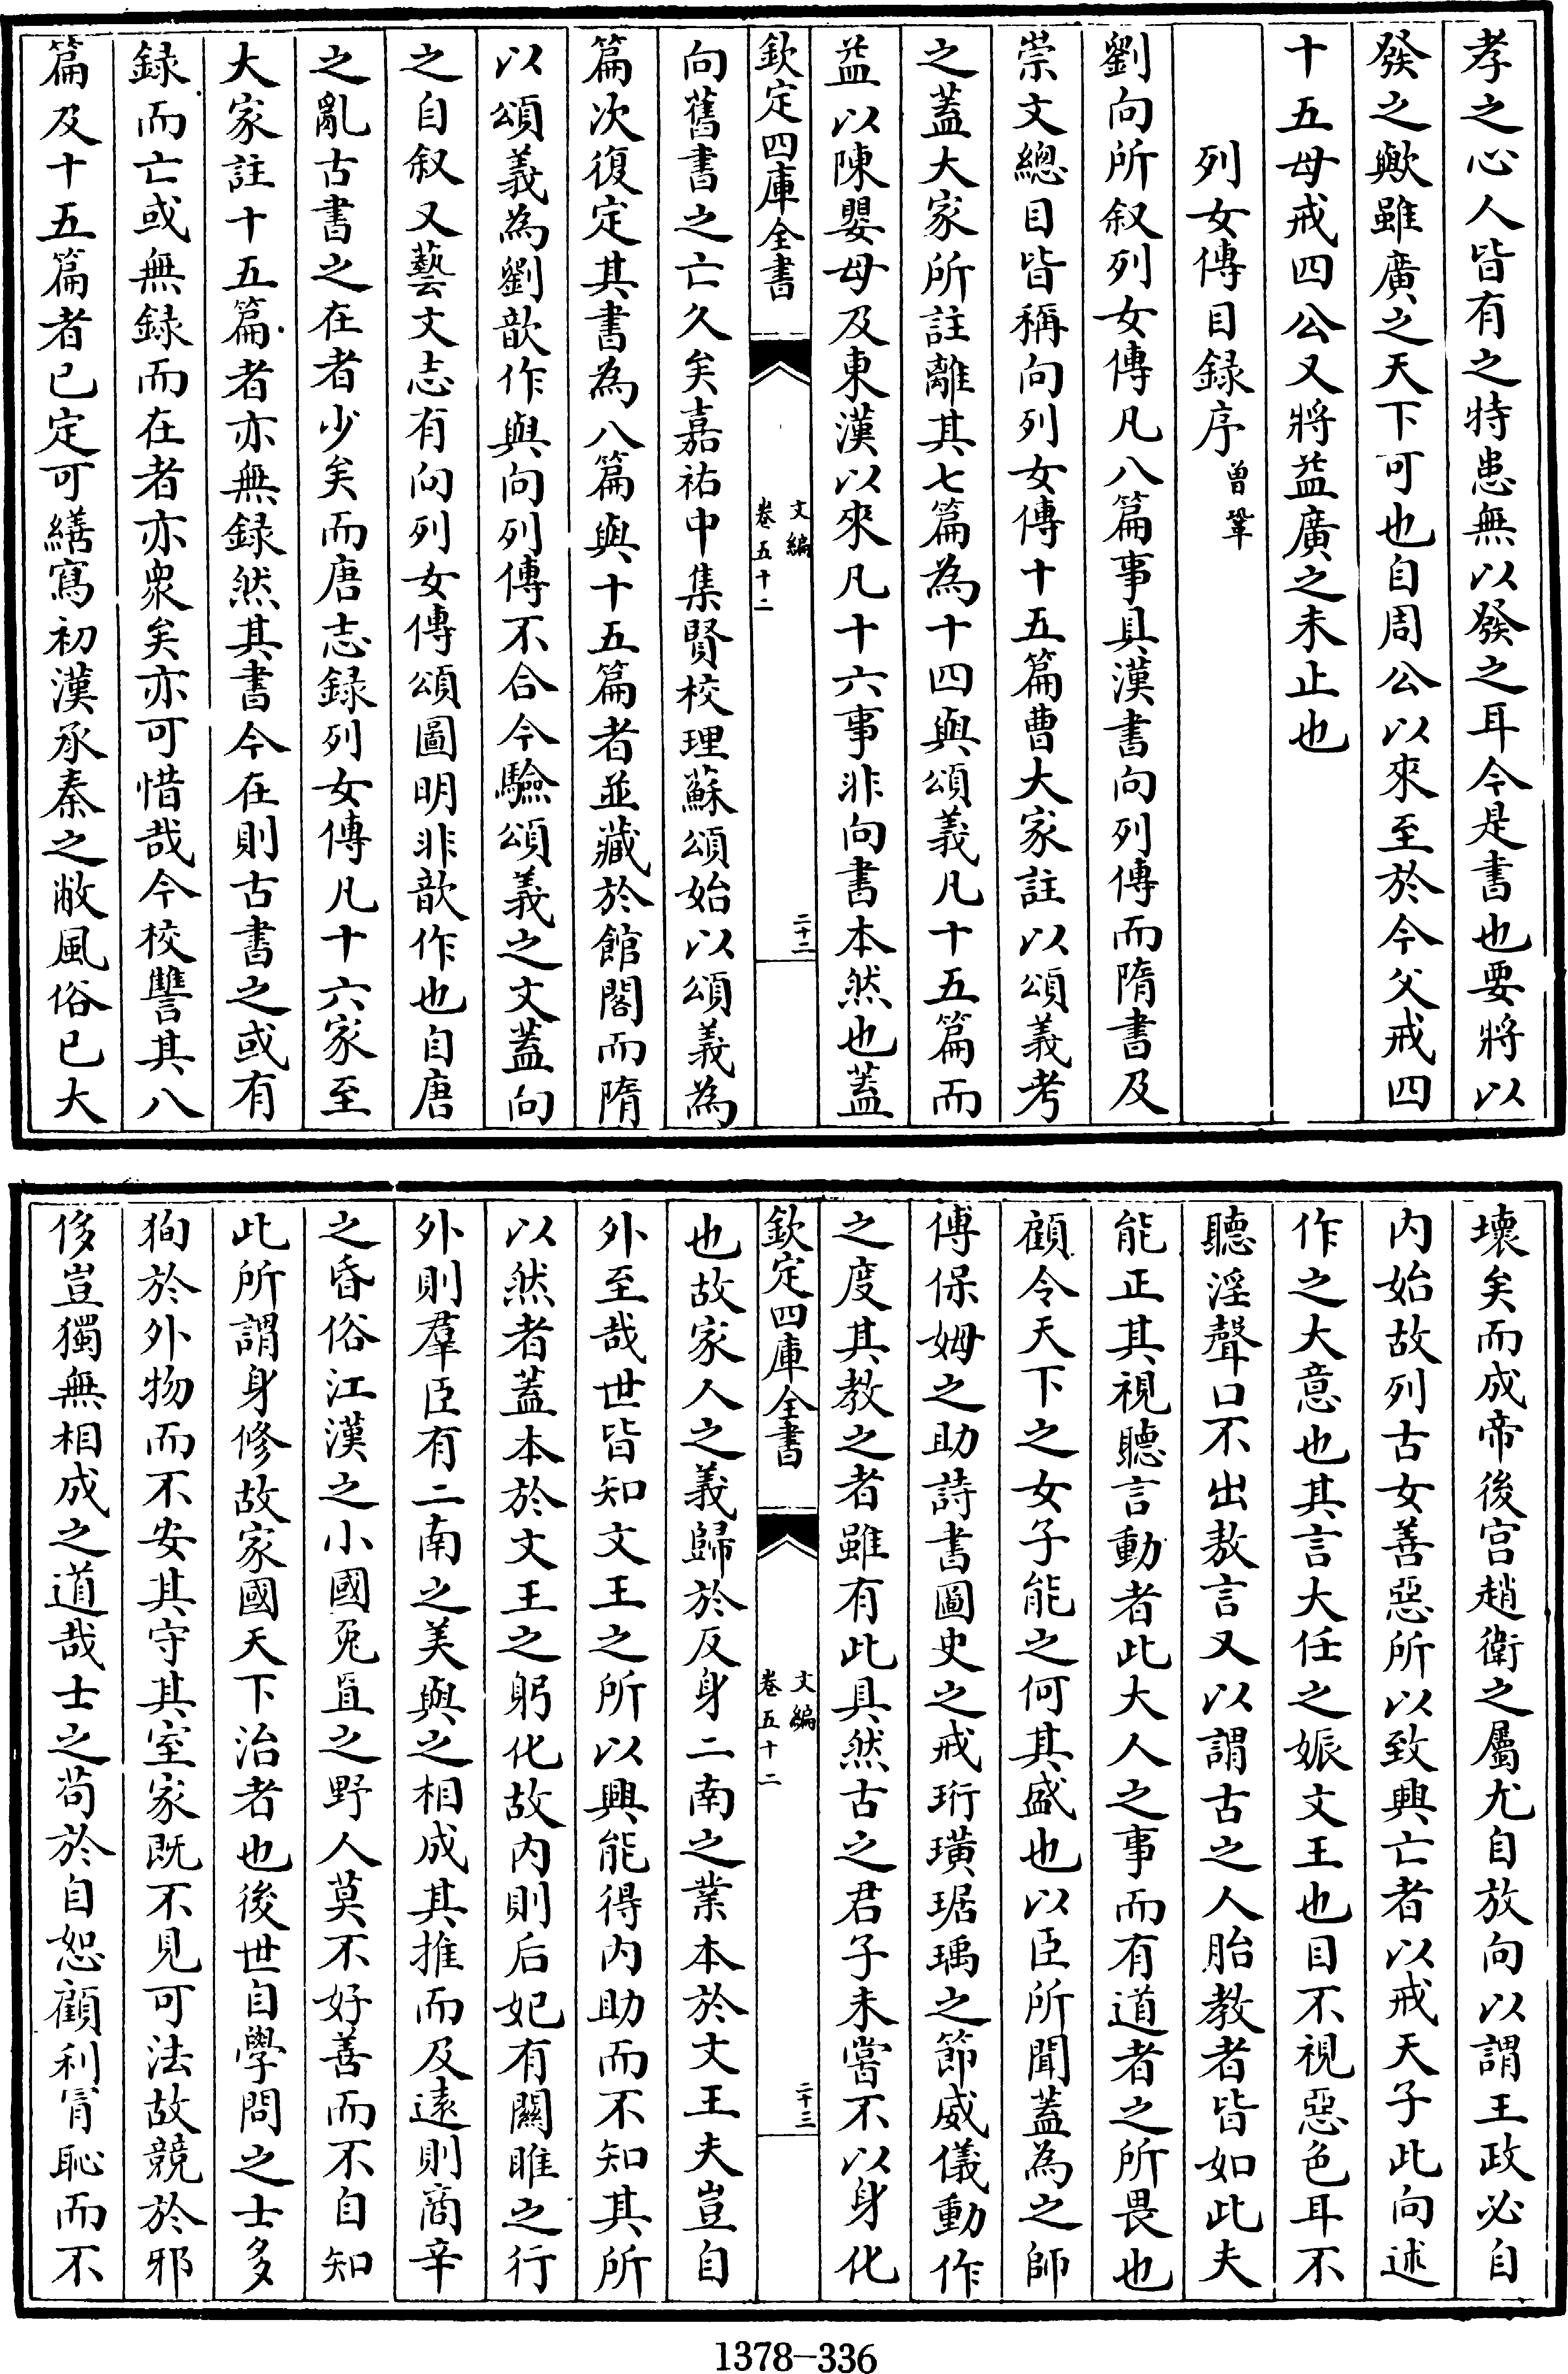 孝之心人皆有之特患無以發之耳今是書也要將以
發之歟雖廣之天下可也自周公以來至於今父戒四
十五母戒四公又將益廣之未止也
列女傳目録序曾鞏
劉向所叙列女傳凡八篇事具漢書向列傳而隋書及
崇文總目皆稱向列女傳十五篇曹大家註以頌義考
之蓋大家所註離其七篇為十四與頌義凡十五篇而
益以陳嬰母及東漢以來凡十六事非向書本然也蓋
欽定四庫全書
文編
卷五十二
二十二
向舊書之亡久矣嘉祐中集賢校理蘇頌始以頌義為
篇次復定其書為八篇與十五篇者並藏於館閣而隋
以頌義為劉歆作與向列傳不合今驗頌義之文蓋向
之自叙又藝文志有向列女傳頌圖明非歆作也自唐
之亂古書之在者少矣而唐志録列女傳凡十六家至
大家註十五篇者亦無録然其書今在則古書之或有
録而亡或無録而在者亦衆矣亦可惜哉今校讐其八
篇及十五篇者已定可繕寫初漢承秦之敝風俗已大
壞矣而成帝後宫趙衛之屬尤自放向以謂王政必自
内始故列古女善惡所以致興亡者以戒天子此向述
作之大意也其言大任之娠文王也目不視惡色耳不
聽淫聲口不出敖言又以謂古之人胎教者皆如此夫
能正其視聽言動者此大人之事而有道者之所畏也
顧令天下之女子能之何其盛也以臣所聞蓋為之師
傅保姆之助詩書圖史之戒珩璜琚瑀之節威儀動作
之度其教之者雖有此具然古之君子未嘗不以身化
欽定四庫全書
文編
卷五十二
二十三
也故家人之義歸於反身二南之業本於文王夫豈自
外至哉世皆知文王之所以興能得内助而不知其所
以然者蓋本於文王之躬化故内則后妃有關雎之行
外則羣臣有二南之美與之相成其推而及逺則商辛
之昏俗江漢之小國兎罝之野人莫不好善而不自知
此所謂身修故家國天下治者也後世自學問之士多
狥於外物而不安其守其室家既不見可法故競於邪
侈豈獨無相成之道哉士之苟於自恕顧利冐恥而不
1378—336